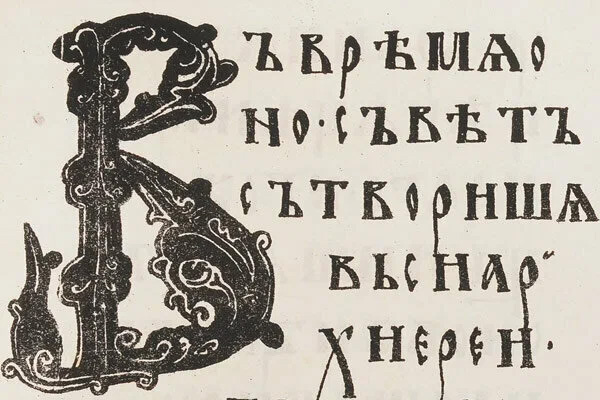 ВЪВРѢМѦО
НО·СЪВѢТЪ
СЪТВОРИШѦ
ВЬСИАР
ХИЕРЕИ·